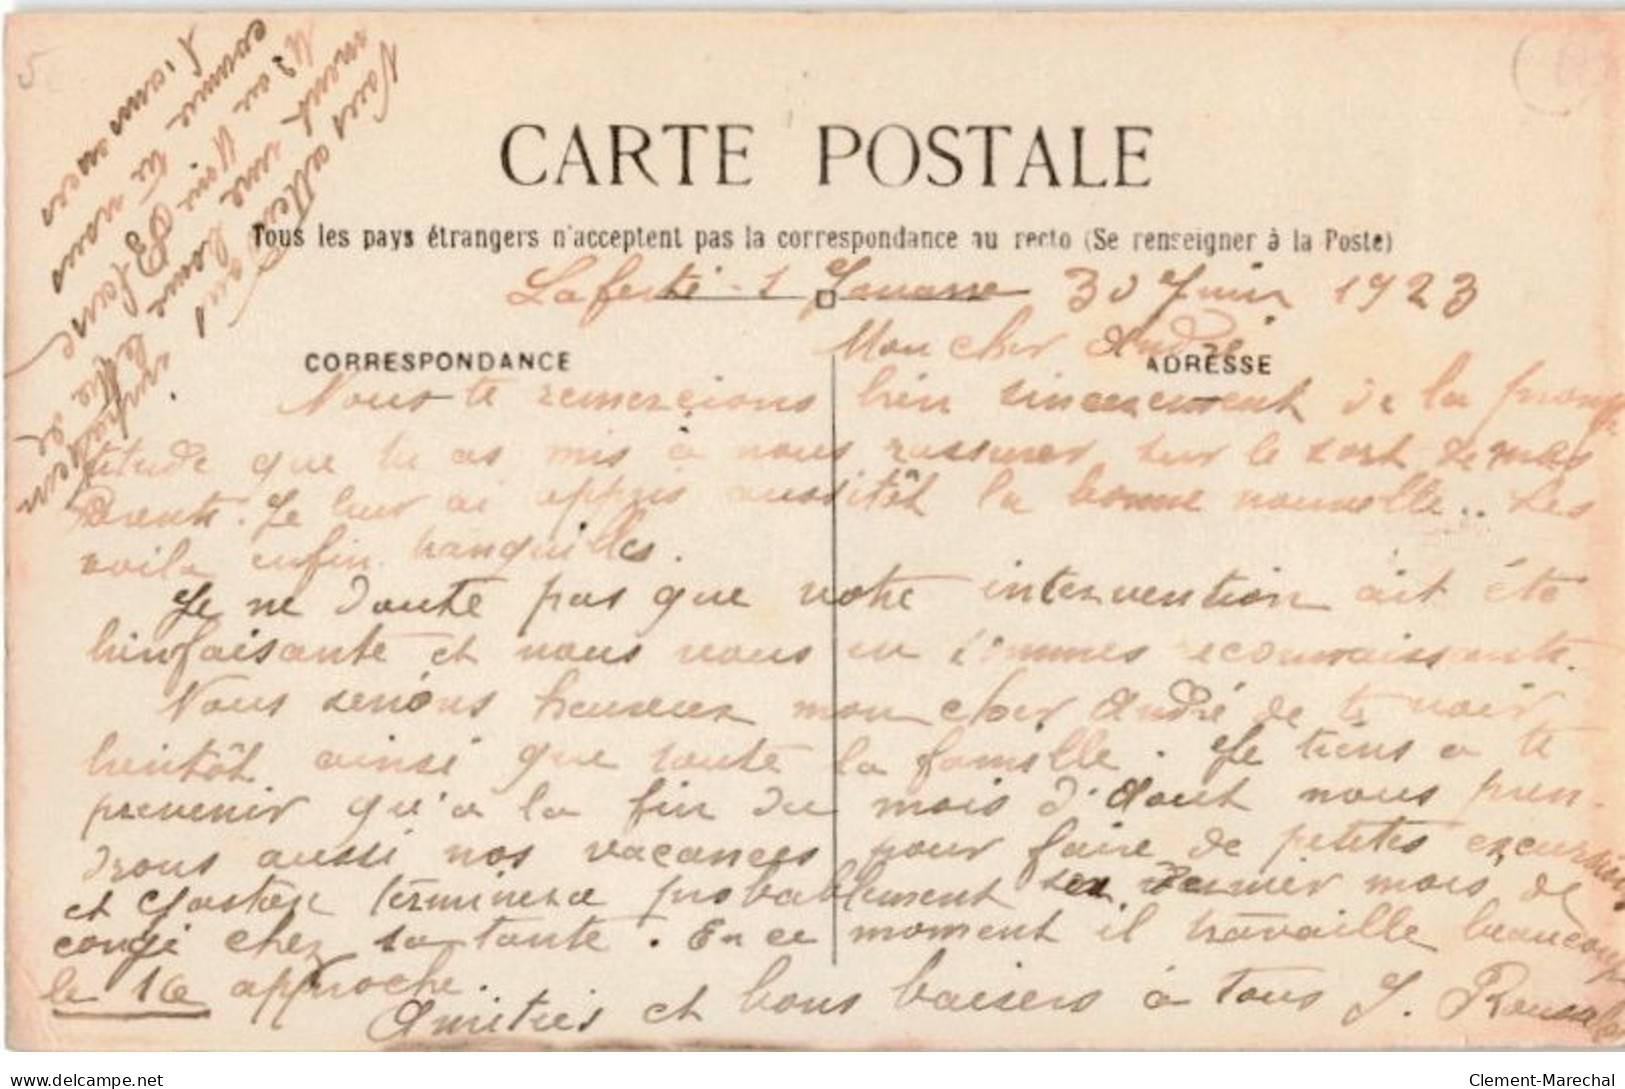 CARTE POSTALE
Tous les pays étrangers n'acceptent pas la correspondance au recto (Se renseigner à la Poste)
Laferté-s Jouarre 30 Juin 1923
Mon cher André
CORRESPONDANCE
ADRESSE
Nous te remercions bien sincerement de la promp
titude que tu as mis à nous rassurer sur le sort de mes
Parents. Je leur ai appris aussitôt la bonne nouvelle.. Les
voila enfin tranquilles.
Je ne doute pas que votre intervention ait été
bienfaisante et nous vous en sommes reconnaissants.
Nous serions heureux mon cher André de te voir
bientôt ainsi que toute la famille. Je tiens a te
prevenir qu'a la fin du mois d'Aout nous pren-
drons aussi nos vacances pour faire de petites excursions
et Gaston terminera probablement son dernier mois de
congé chez sa tante. En ce moment il travaille beaucoup
le 16 approche.
Amitiés et bons baisers à tous J.
Vous allez
ment une
comme tu nous
l'annonces
Clement-Marechal
delcampe.net